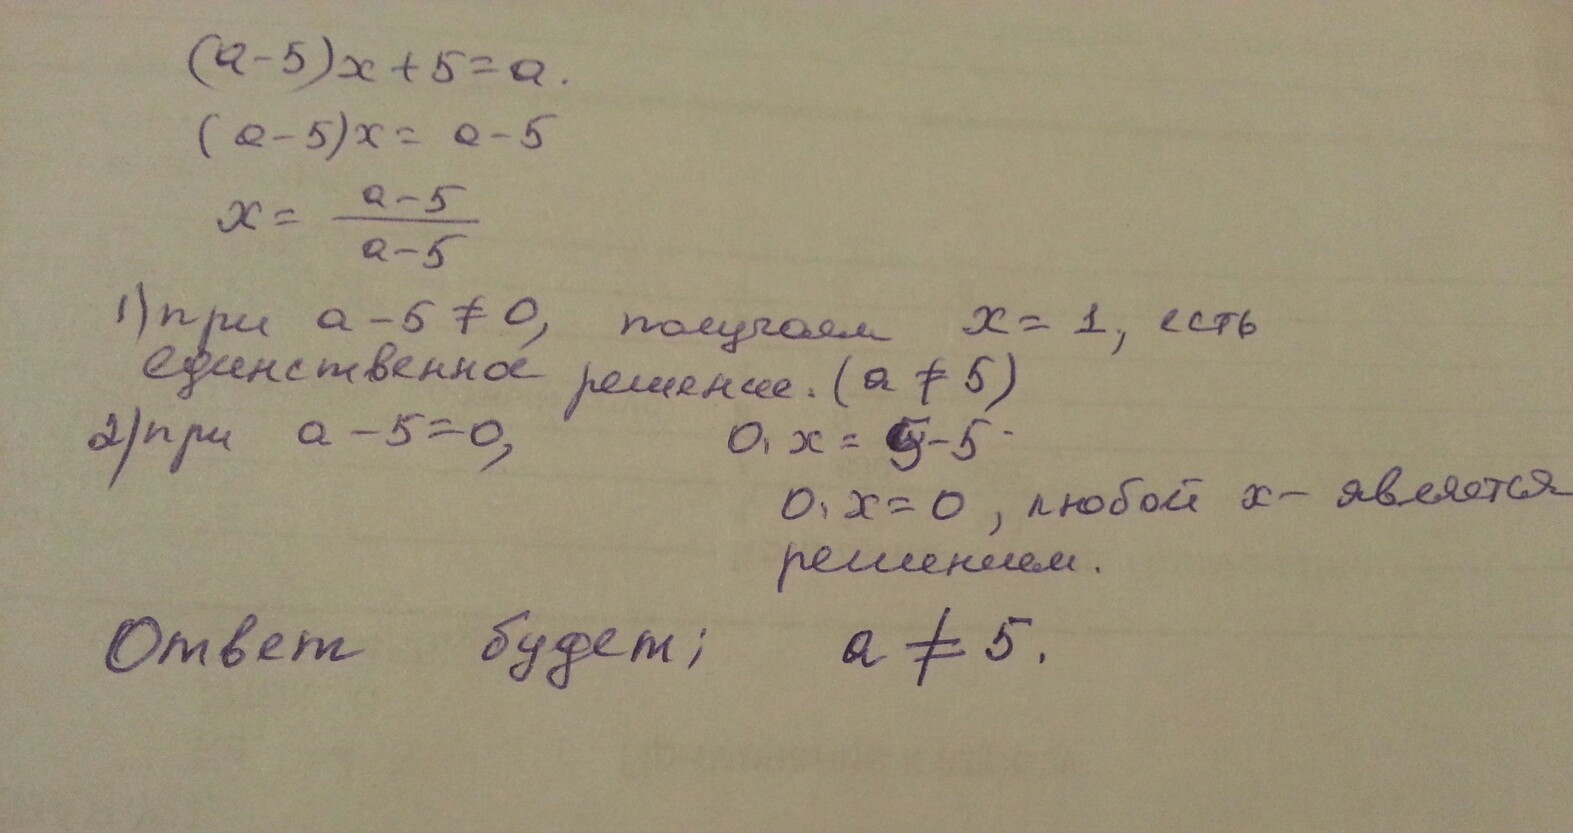 (a-5)x+5=a.
(a-5)x= a-5
x= a-5
a-5
1) при a-5≠0, получаем x=1, есть
единственное решение. (a≠5)
2) при a-5=0, 0·x = 5-5
0·x=0, любой x- является
решением.
Ответ будет; a≠5.